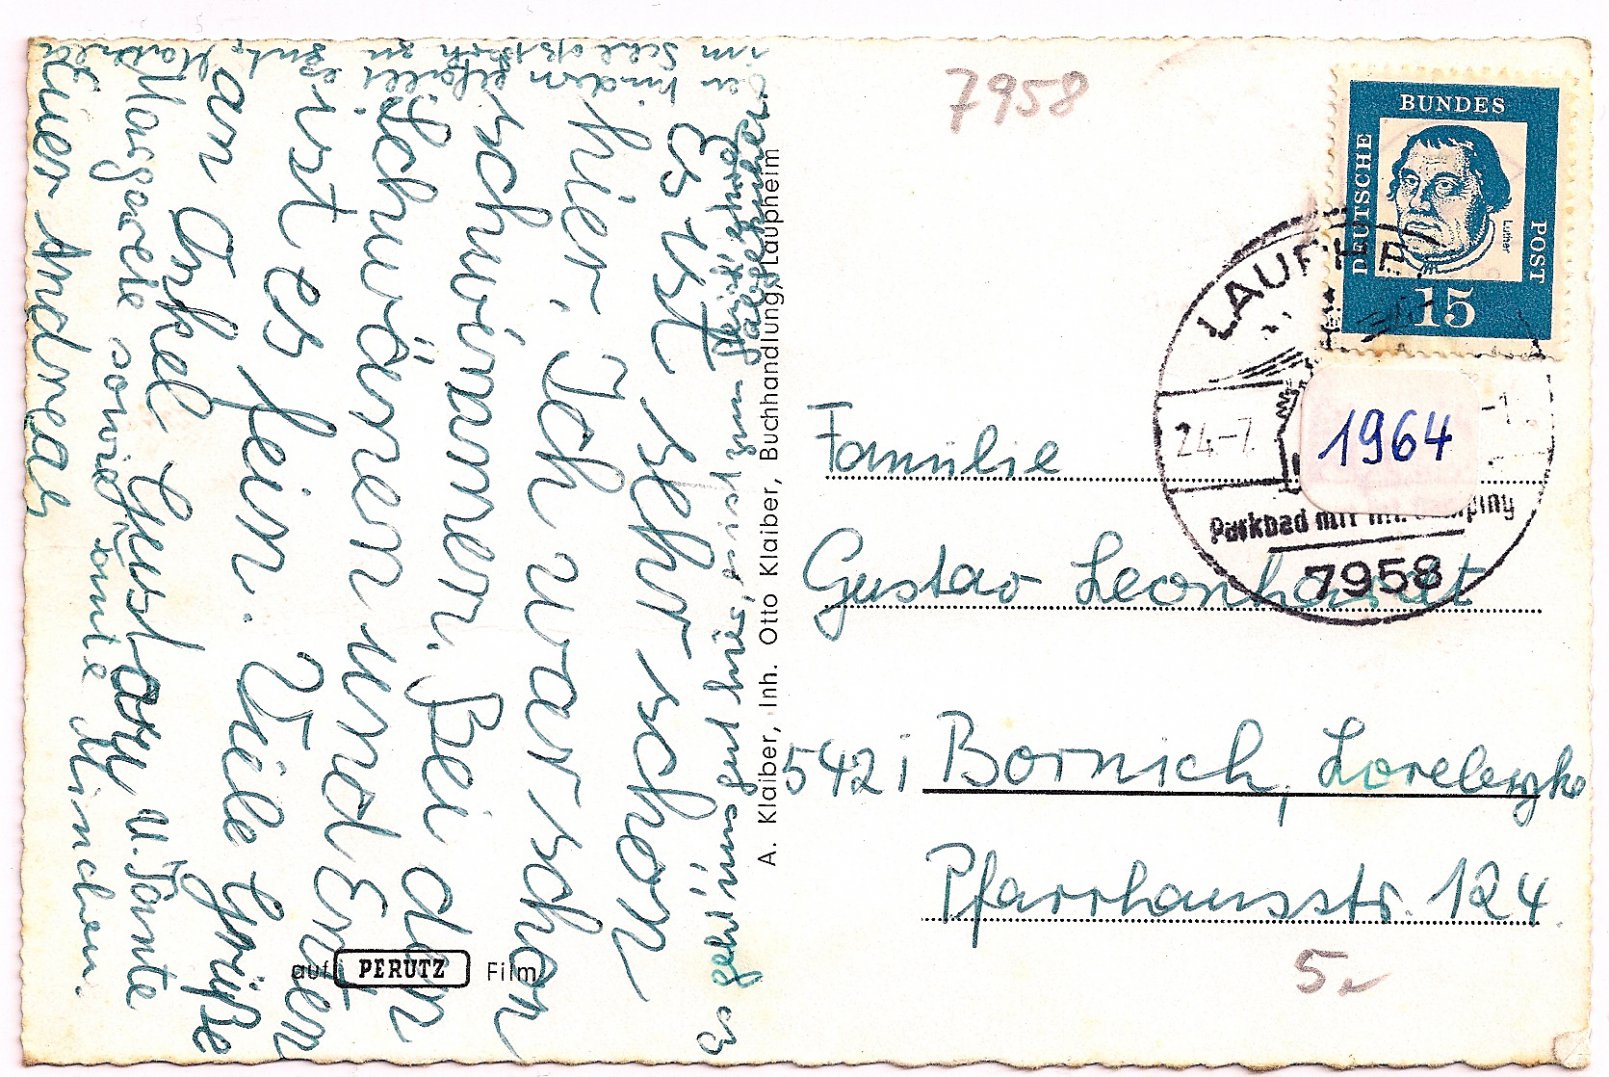 7958
BUNDES
DEUTSCHE
POST
Luther
15
LAUPHE
24.-7.
1964
Parkbad mit
7958
Familie
Gustav Leonhardt
5421 Bornich, Loreleykr.
Pfarrhausstr. 124
5
A. Klaiber, Inh. Otto Klaiber, Buchhandlung, Laupheim
auf PERUTZ Film
Es ist sehr schön
hier. Ich war schon
schwimmen. Bei den
Schwänen und Enten
ist es fein. Viele Grüße
an Onkel Gustav u. Tante
Margarete sowie Tante Minchen.
Euer Andreas
Es geht uns gut hier, es ist zum
im Schloßpark zu
den Kindern gefällt es gut,